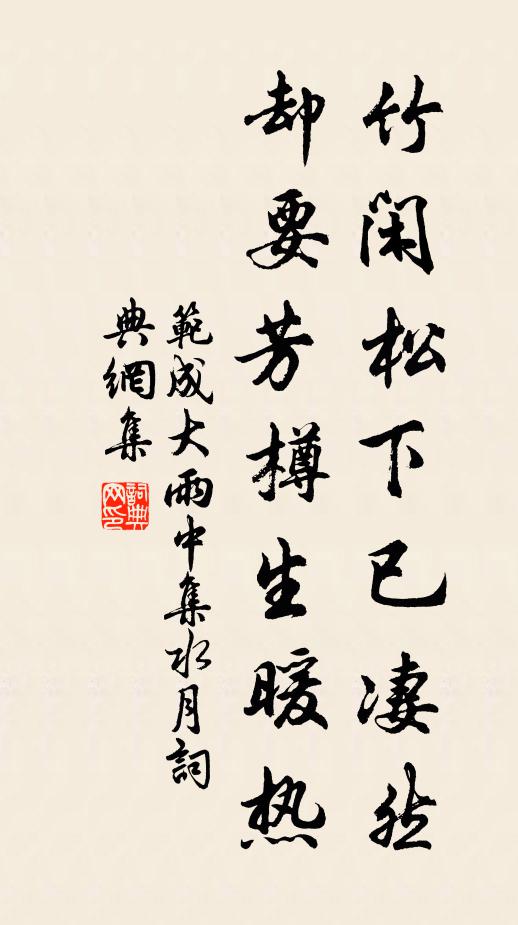 竹闲松下已凄然
却要芳樽生暖热
範成大雨中集水月詞
典網集
詞典
网印